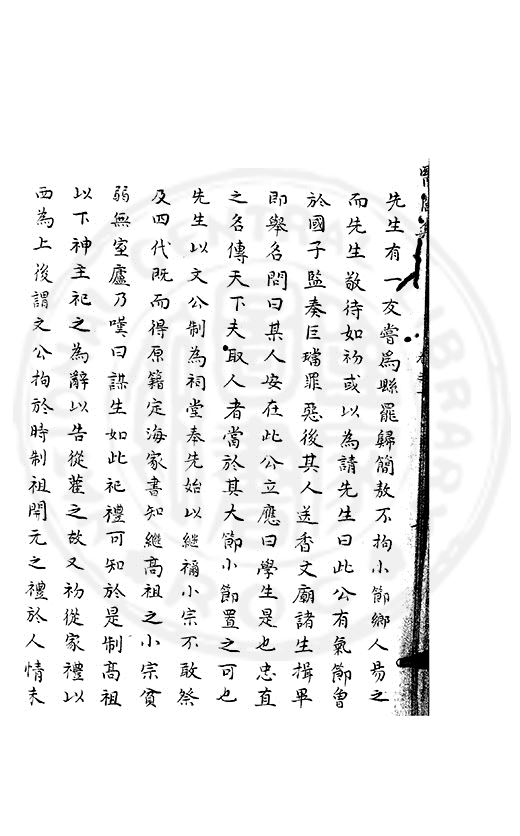 先生有一友嘗爲縣罷歸簡敖不拘小節鄉人易之
而先生敬待如初或以為請先生曰此公有氣節曾
於國子監奏巨璫罪惡後其人送香文廟諸生揖畢
即舉名問曰某人安在此公立應曰學生是也忠直
之名傳天下夫取人者當於其大節小節置之可也
先生以文公制為祠堂奉先始以繼禰小宗不敢祭
及四代既而得原籍定海家書知繼高祖之小宗貧
弱無室廬乃嘆曰謀生如此祀禮可知於是制高祖
以下神主祀之為辭以告從權之故又初從家禮以
西為上後謂文公拘於時制祖開元之禮於人情未